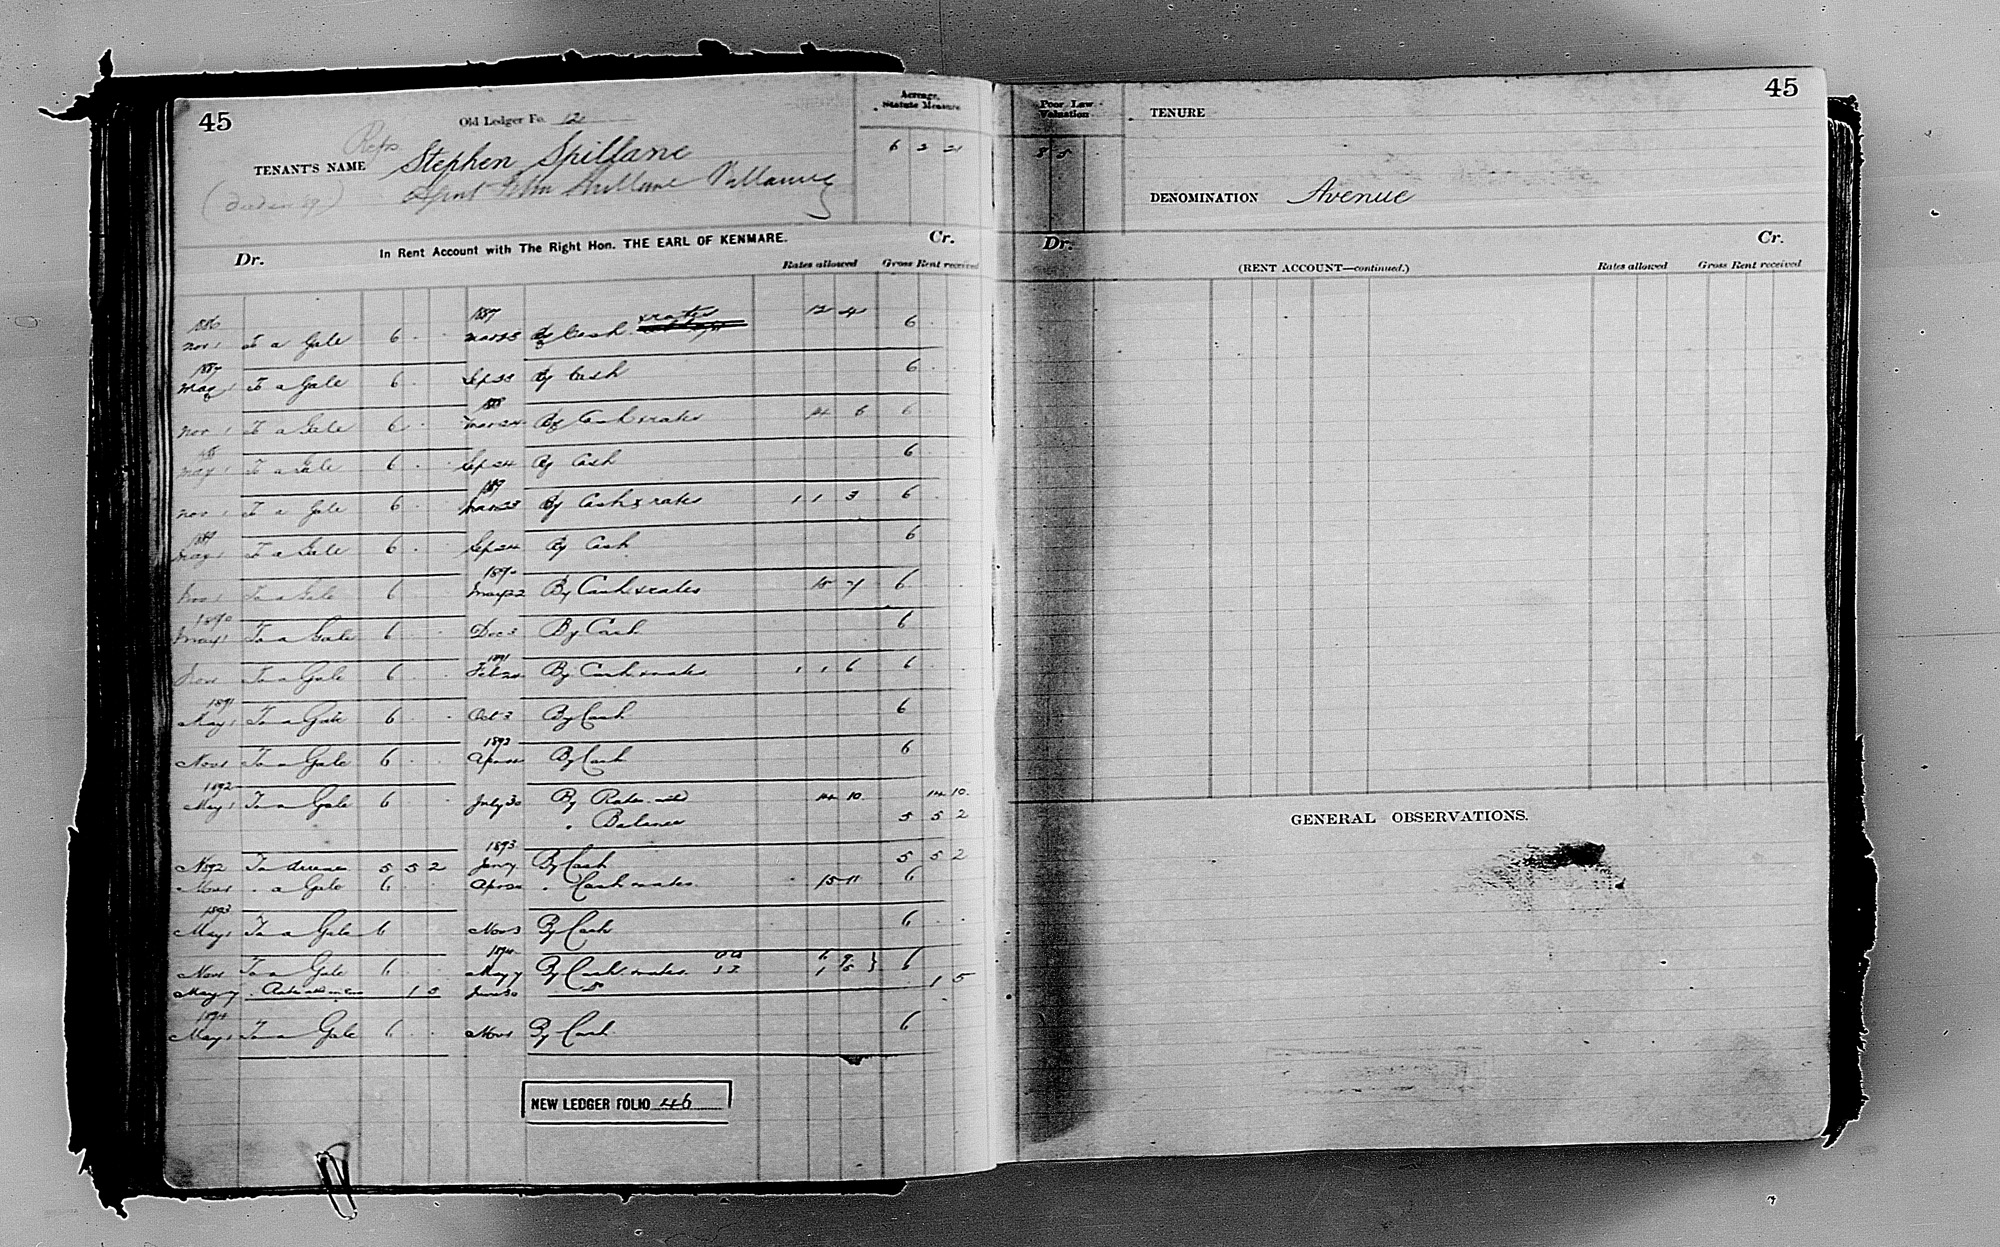 45
Old Ledger Fo. 12
Acreage, Statute Measure
Reps
TENANT'S NAME Stephen Spillane
6 2 21
Agent John Spillane Killarney
In Rent Account with The Right Hon. THE EARL OF KENMARE.
Dr. Cr.
Rates allowed Gross Rent received
1886 1887 & rates 12 4
Nov 1 To a Gale 6 . . Mar 23 By Cash 6 .
1887
May 1 To a Gale 6 . . Sep 23 By Cash 6 .
1888
Nov 1 To a Gale 6 . . Mar 24 By Cash & rates 14 6 6
88
May 1 To a Gale 6 . . Sep 24 By Cash 6 .
1889
Nov 1 To a Gale 6 . . Mar 23 By Cash & rates 1 1 3 6
1889
May 1 To a Gale 6 . . Sep 24 By Cash 6
1890
Nov 1 To a Gale 6 . . May 22 By Cash & rates 15 7 6
1890
May 1 To a Gale 6 . . Dec 3 By Cash 6
1891
Nov 1 To a Gale 6 . . Feb 24 By Cash & rates 1 1 6 6
1891
May 1 To a Gale 6 . . Oct 3 By Cash 6
1892
Nov 1 To a Gale 6 . . By Cash 6
1892
May 1 To a Gale 6 . . July 30 By Rates 14 10 14 10
" Balance 5 5 2
1893
To arrears 5 5 2 Jany By Cash 5 5 2
Nov 1 " a Gale 6 . . Apr 20 " Cash & rates 15 11 6
1893
May 1 To a Gale 6 Nov 3 By Cash 6 . .
1894
Nov 1 To a Gale 6 . . May 7 By Cash & rates 6 9 } 6
1 5
May 7 1 5 June 30 Do 1 5
1894
May 1 To a Gale 6 . . Nov 1 By Cash 6
NEW LEDGER FOLIO 46
45
Poor Law Valuation
TENURE
8 5
DENOMINATION Avenue
Dr. Cr.
(RENT ACCOUNT—continued.)
Rates allowed Gross Rent received
GENERAL OBSERVATIONS.